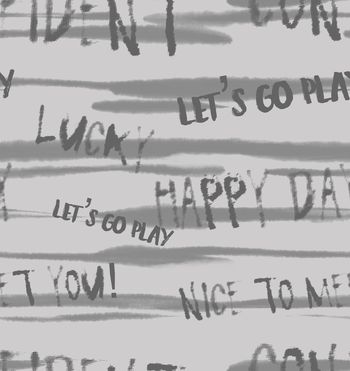 IDENT CON
Y LET'S GO PLAY
LUCKY
HAPPY DAY
LET'S GO PLAY
ET YOU!
NICE TO ME